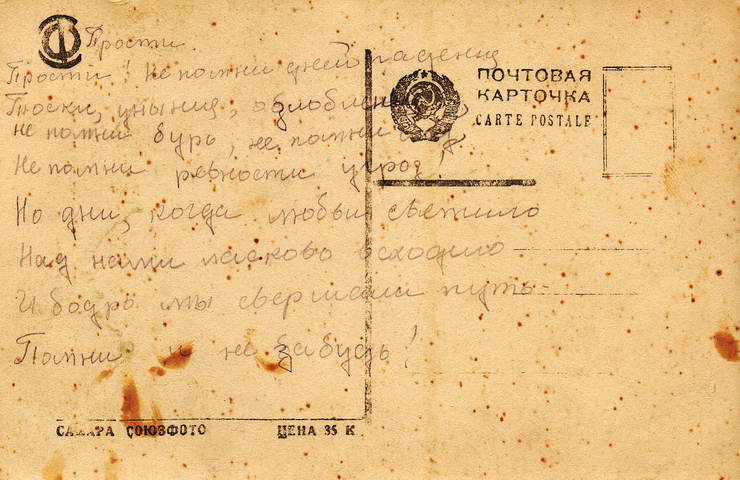 Прости.
Прости! Не помни дней паденья
Тоски, унынья, озлобленья
не помни бурь, не помни
Не помни ревности угроз,
Но дни, когда любви светило
Над нами ласково всходило
И бодро мы свершали путь -
Помни и не забудь!
ПОЧТОВАЯ
КАРТОЧКА
CARTE POSTALE
САМАРА СОЮЗФОТО ЦЕНА 35 К